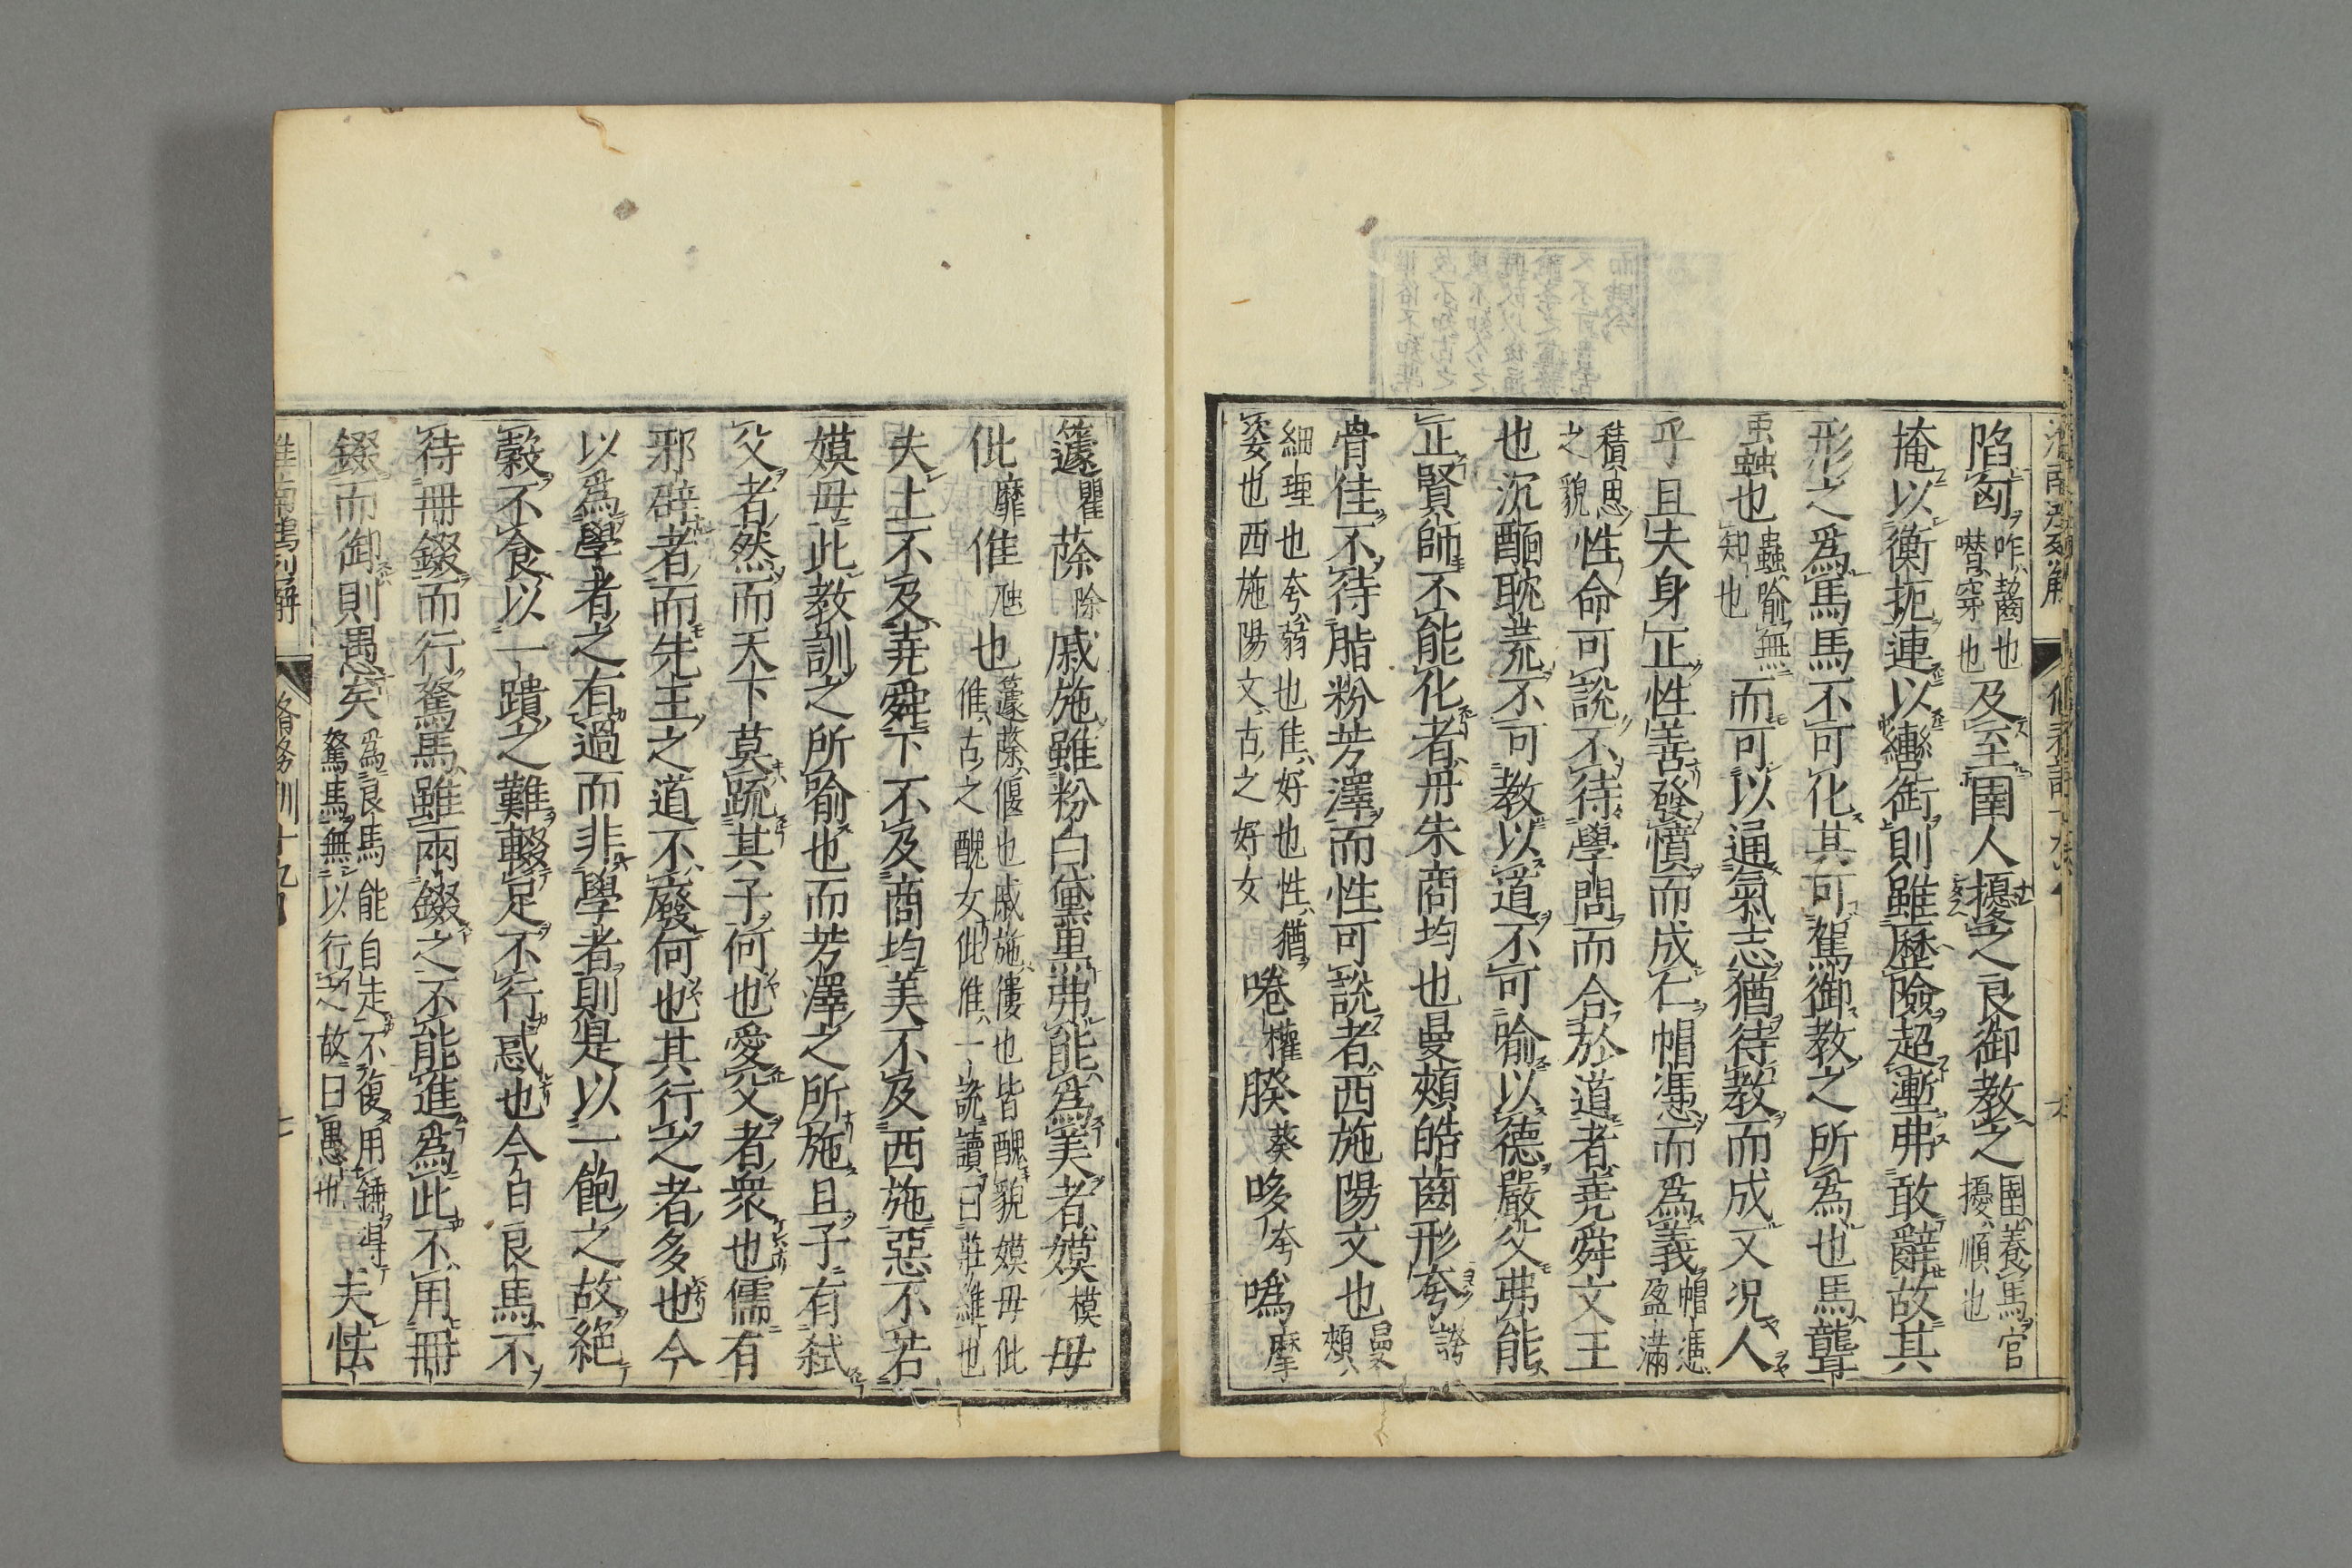 陷匈咋齧也嚼穿也及至圉人擾之良御教之圉養馬官擾順也
掩以衡扼連以轡銜則雖歷險超塹弗敢辭故其
形之爲馬馬不可化其可駕御教之所爲也馬聾
虫蟲也蟲喻無知也而可以通氣志猶待教而成又况人
乎且夫身正性善發憤而成仁帽憑而爲義帽憑盈滿
積思之貌性命可說不待學問而合於道者堯舜文王
也沉酾耽荒不可教以道不可喻以德嚴父弗能
正賢師不能化者丹朱商均也曼頰皓齒形夸誇
骨佳不待脂粉芳澤而性可說者西施陽文也曼頰
細理也夸弱也佳好也性猶姿也西施陽文古之好女啳權脥葵哆夸噅摩
籧瞿蒢除戚施雖粉白黛黑弗能爲美者嫫模毋
仳靡倠虺也籧蒢偃也戚施僂也皆醜貌嫫毋仳倠古之醜女仳倠一說讀曰莊維也
夫上不及堯舜下不及商均美不及西施惡不若
嫫毋此教訓之所喻也而芳澤之所施且子有弑
父者然而天下莫疏其子何也愛父者衆也儒有
邪辟者而先王之道不廢何也其行之者多也今
以爲學者之有過而非學者則是以一飽之故絕
穀不食以一蹪之難輟足不行惑也今日良馬不
待冊錣而行駑馬雖兩錣之不能進爲此不用冊
錣而御則愚矣爲良馬能自走不復用錘得駑馬無以行之故曰愚也夫怯
淮南鴻列解
脩務訓十九
七